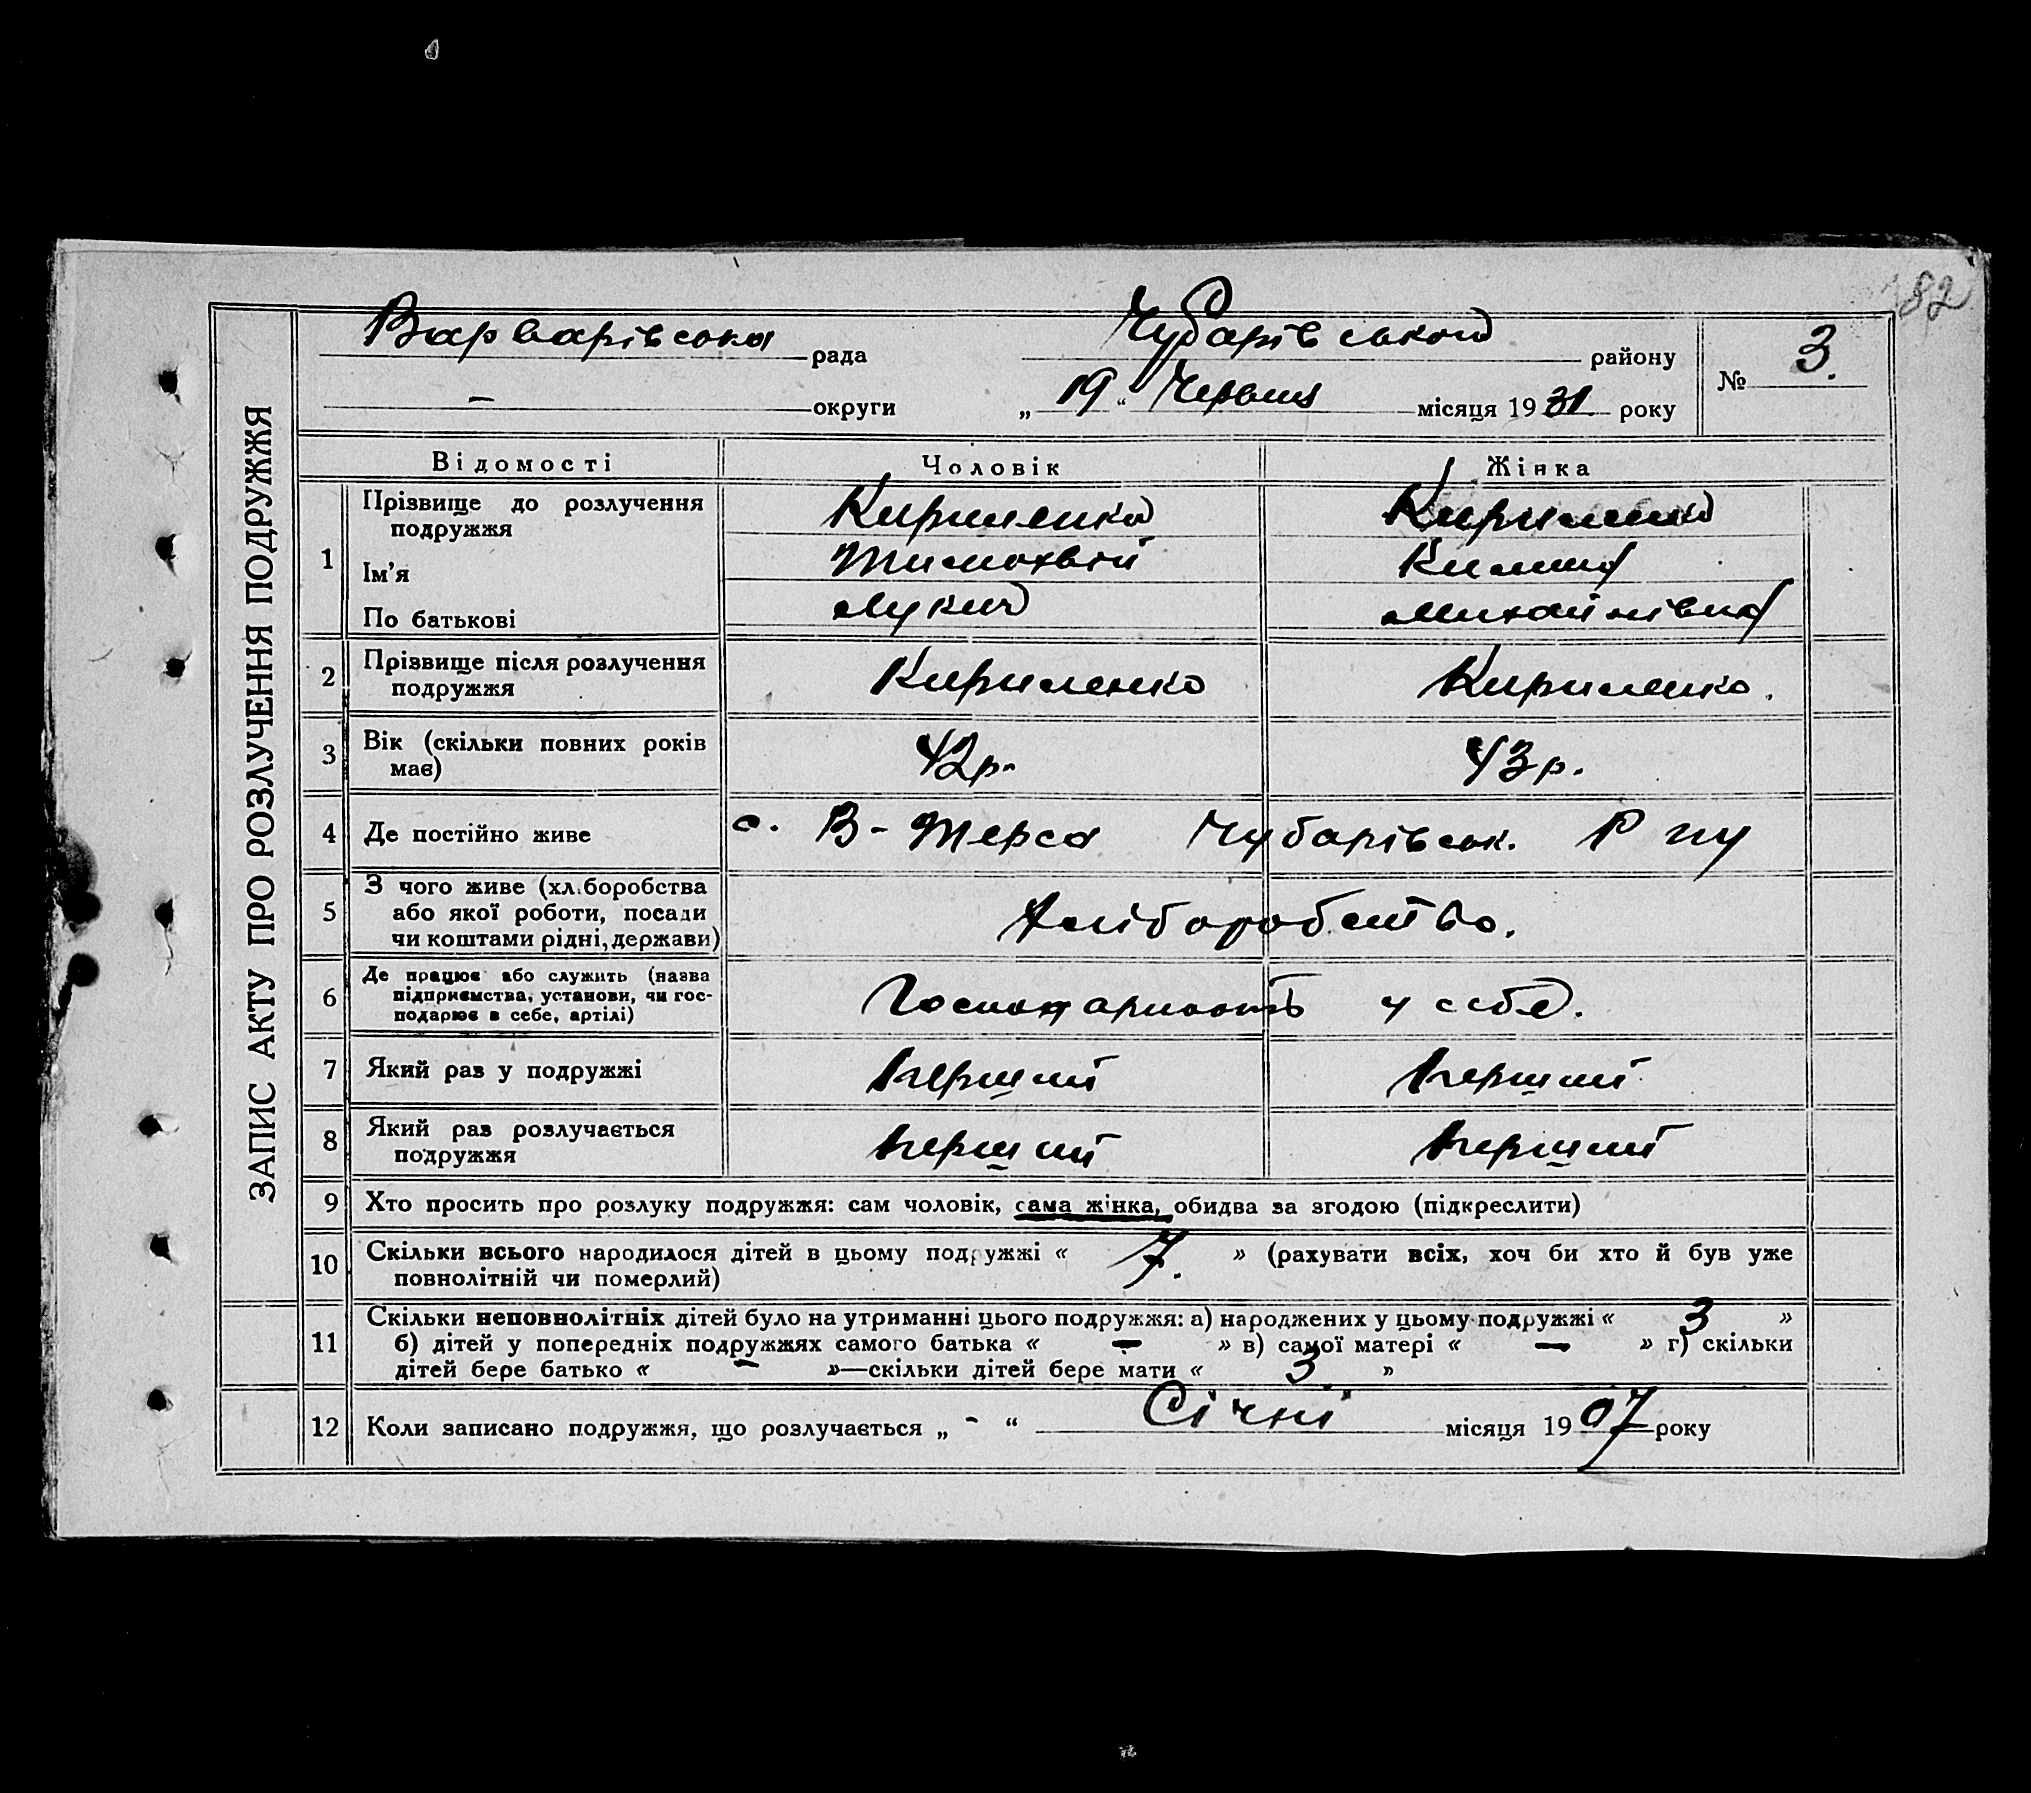 82
Варварівська рада Чубарівського району № 3.
— округи „ 19 “ Червня місяця 1931 року
ЗАПИС АКТУ ПРО РОЗЛУЧЕННЯ ПОДРУЖЖЯ
Відомості Чоловік Жінка
1 Прізвище до розлучення Кириленко Кириленко
подружжя
Ім’я Тимохвій
По батькові Лукич Михайлівна
2 Прізвище після розлучення Кириленко Кириленко.
подружжя
3 Вік (скільки повних років 42 р. 43 р.
має)
4 Де постійно живе с. В-Терса Чубарівськ. Р ну
5 З чого живе (хл.боробства
або якої роботи, посади Хліборобство.
чи коштами рідні, держави)
6 Де працює або служить (назва
підприємства, установи, чи гос- у себе.
подарює в себе, артілі)
7 Який раз у подружжі перший перший
8 Який раз розлучається перший перший
подружжя
9 Хто просить про розлуку подружжя: сам чоловік, сама жінка, обидва за згодою (підкреслити)
10 Скільки всього народилося дітей в цьому подружжі « 7. » (рахувати всіх, хоч би хто й був уже
повнолітній чи померлий)
11 Скільки неповнолітніх дітей було на утриманні цього подружжя: а) народжених у цьому подружжі « 3 »
б) дітей у попередніх подружжях самого батька « — » в) самої матері « — » г) скільки
дітей бере батько « — »—скільки дітей бере мати « 3 »
12 Коли записано подружжя, що розлучається „ - “ Січні місяця 1907 року